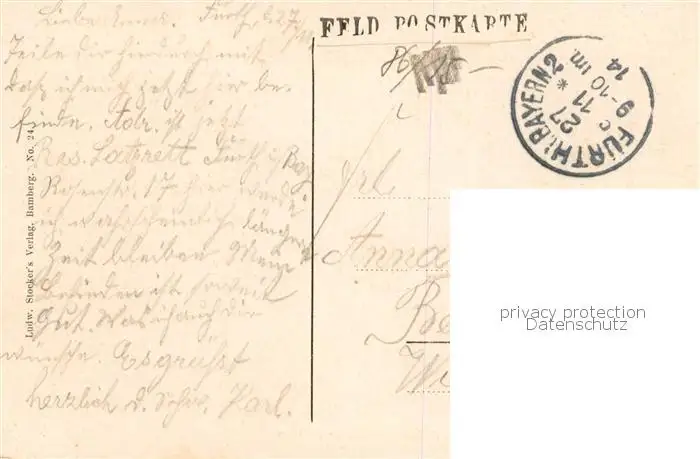 Liebe Anna. Fürth, d. 27.
Teile dir hierdurch mit
daß ich mich jetzt hier be-
finde. Adr. ist jetzt
Res. Lazarett Fürth i/Bay
Rosenstr. 17 hier werde
ich wahrscheinlich längere
Zeit bleiben. Mein
Befinden ist soweit
Gut. Was ich auch dir
wünsche. Es grüßt
herzlich d. Karl.
Ludw. Stocker's Verlag, Bamberg. No. 24.
FELD POSTKARTE
86/15
FÜRTH i. BAYERN 2
27
11
9-10 Vm.
14
c
Frl.
Anna
privacy protection
Datenschutz